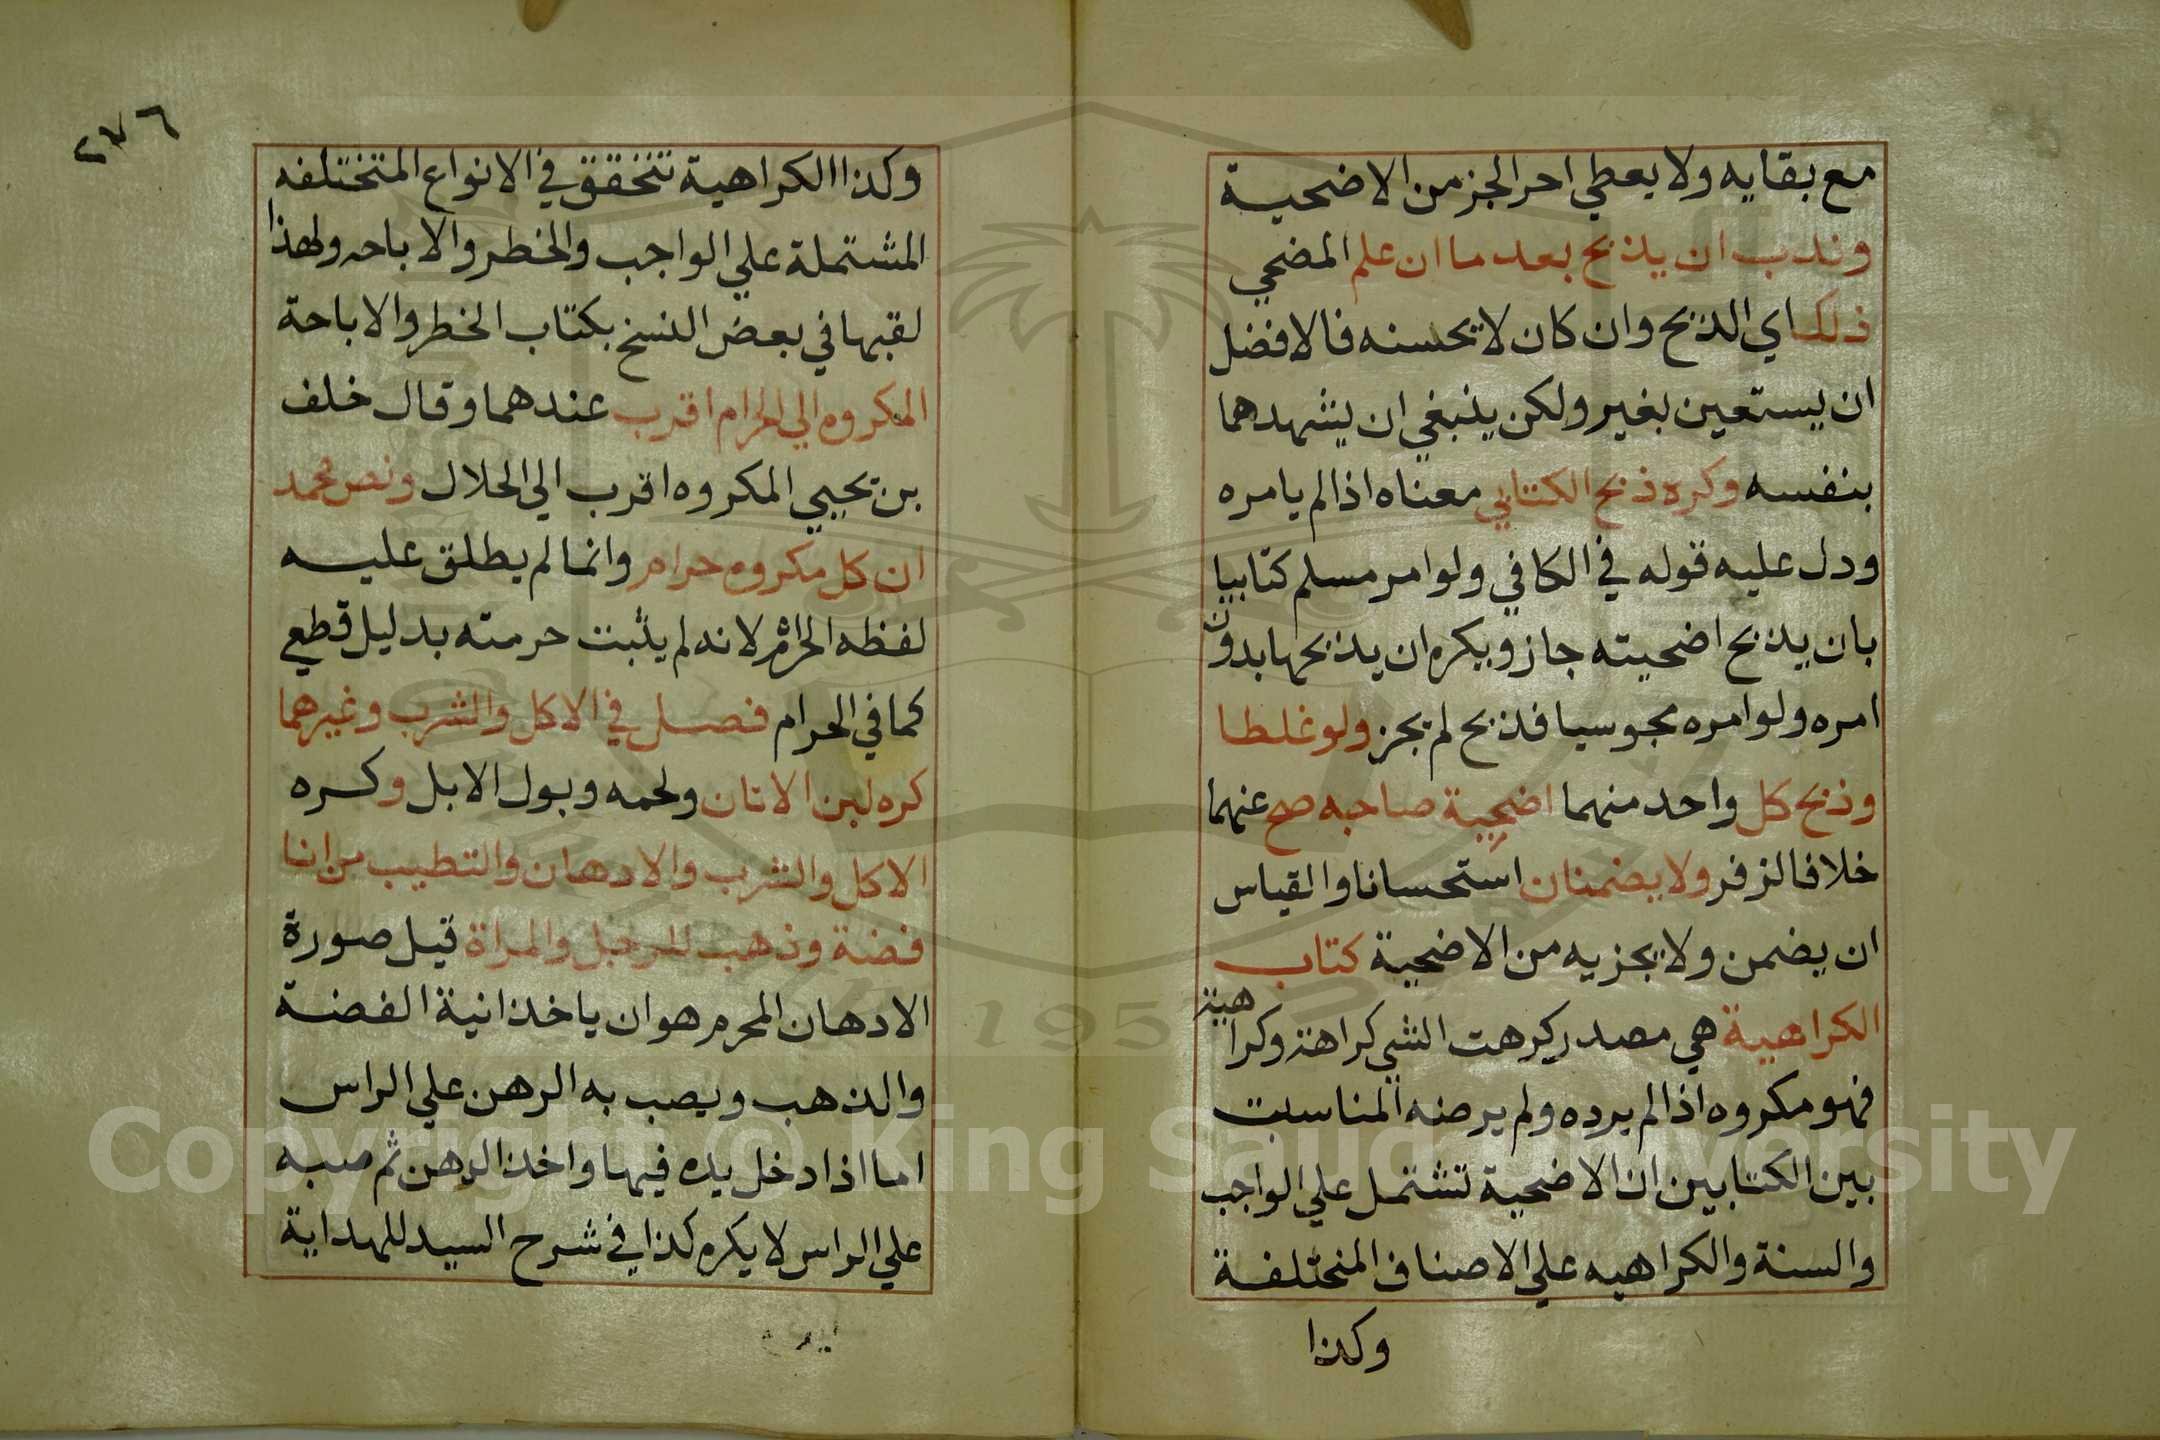 مع بقايه ولا يعطي اجر الجزر من الاضحية
وندب ان يذبح بعد ما ان علم المضحي
ذلك اي الذبح وان كان لا يحسنه فالافضل
ان يستعين بغير ولكن ينبغي ان يشهدهما
بنفسه وكره ذبح الكتابي معناه اذا لم يامره
ودل عليه قوله في الكافي ولو امر مسلم كتابيا
بان يذبح اضحيته جاز ويكره ان يذبحها بدون
امره ولو امره مجوسيا فذبح لم يجز ولو غلطا
وذبح كل واحد منهما اضحية صاحبه صح عنهما
خلافا لزفر ولا يضمنان استحسانا والقياس
ان يضمن ولا يجزيه من الاضحية كتاب
الكراهية هي مصدر كرهت الشي كراهة وكراهية
فهو مكروه اذا لم يرده ولم يرضه المناسبت
بين الكتابين ان الاضحية تشتمل علي الواجب
والسنة والكراهيه علي الاصناف المختلفة
وكذا
٢٧٦
وكذا الكراهية تتحقق في الانواع المختلفه
المشتملة علي الواجب والخطر والاباحه ولهذا
لقبها في بعض النسخ بكتاب الخطر والاباحة
المكروه الي الحرام اقرب عندهما وقال خلف
بن يحيي المكروه اقرب الي الحلال ونص محمد
ان كل مكروه حرام وانما لم يطلق عليه
لفظه الحرام لانه لم يثبت حرمته بدليل قطعي
كما في الحرام فصل في الاكل والشرب وغيرهما
كره لبن الاتان ولحمه وبول الابل وكره
الاكل والشرب والادهان والتطيب من انا
فضة وذهب للرجل والمراة قيل صورة
الادهان المحرم هو ان ياخذ انية الفضة
والذهب ويصب به الرهن علي الراس
اما اذا دخل يده فيها واخذ الرهن ثم صبه
علي الراس لا يكره كذا في شرح السيد للهداية
Copyright © King Saud University
1957